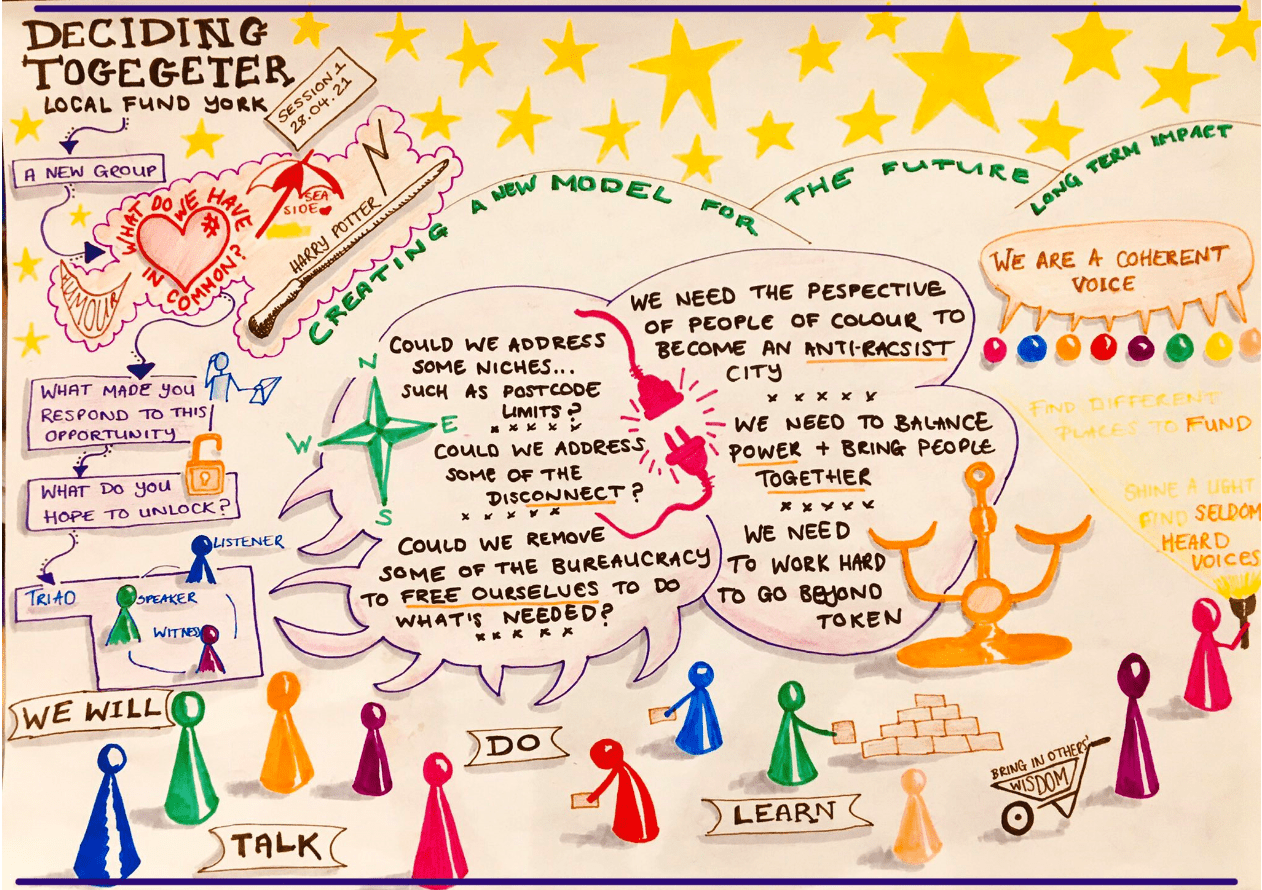 DECIDING
TOGEGETER
LOCAL FUND YORK
SESSION 1
28.04.21
A NEW GROUP
WHAT DO WE HAVE
IN COMMON?
#
HUMOUR
SEA
SIDE
HARRY POTTER
WHAT MADE YOU
RESPOND TO THIS
OPPORTUNITY
WHAT DO YOU
HOPE TO UNLOCK?
TRIAD
LISTENER
SPEAKER
WITNESS
CREATING A NEW MODEL FOR THE FUTURE
LONG TERM IMPACT
N
E
S
W
COULD WE ADDRESS
SOME NICHES...
SUCH AS POSTCODE
LIMITS?
x x x x x
COULD WE ADDRESS
SOME OF THE
DISCONNECT?
x x x x x
COULD WE REMOVE
SOME OF THE BUREAUCRACY
TO FREE OURSELVES TO DO
WHAT'S NEEDED?
x x x x x
WE NEED THE PESPECTIVE
OF PEOPLE OF COLOUR TO
BECOME AN ANTI-RACSIST
CITY
x x x x x
WE NEED TO BALANCE
POWER + BRING PEOPLE
TOGETHER
x x x x x
WE NEED
TO WORK HARD
TO GO BEYOND
TOKEN
WE ARE A COHERENT
VOICE
FIND DIFFERENT
PLACES TO FUND
SHINE A LIGHT
FIND SELDOM
HEARD
VOICES
WE WILL
TALK
DO
LEARN
BRING IN OTHERS'
WISDOM